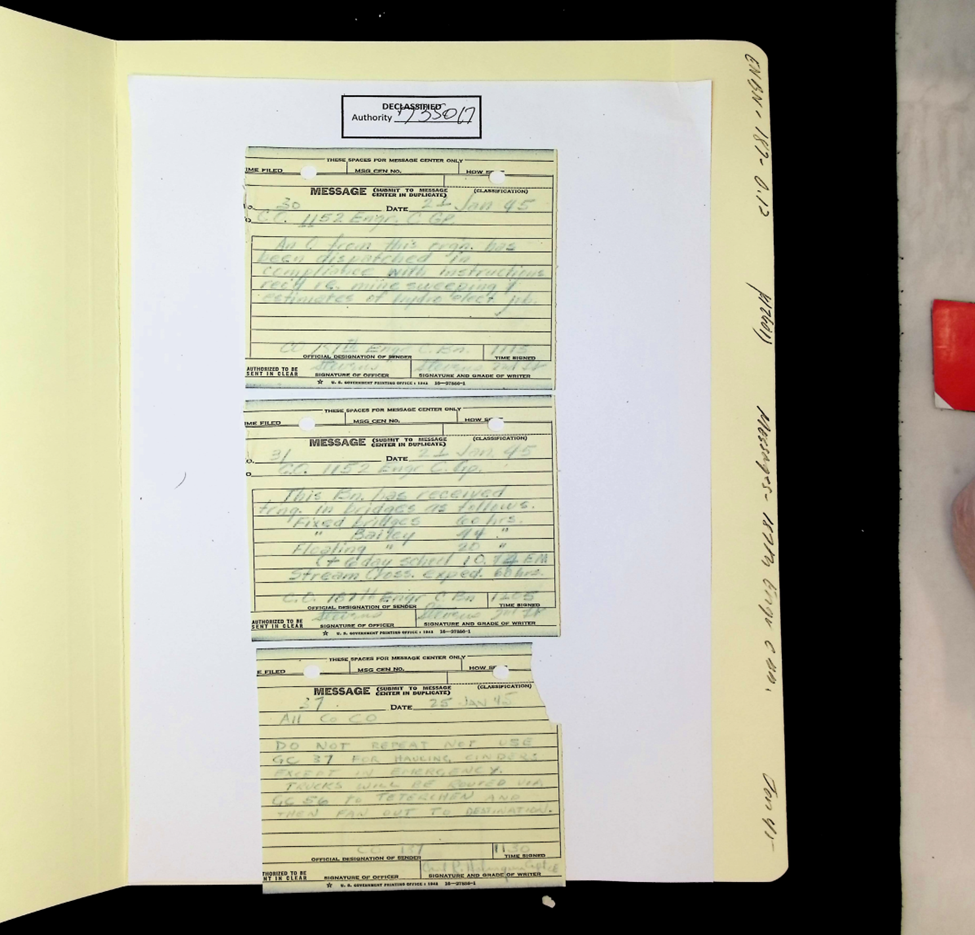 DECLASSIFIED
Authority 735017
THESE SPACES FOR MESSAGE CENTER ONLY
ME FILED MSG CEN NO. HOW
MESSAGE (SUBMIT TO MESSAGE CENTER IN DUPLICATE) (CLASSIFICATION)
30 DATE 21 Jan 45
C.O. 1152 Engr. C Gp.
An O from this orgn. has
been dispatched in
compliance with instructions
rec'd re. mine sweeping &
estimates of hydro elect job.
CO 187th Engr C. Bn. 1115
OFFICIAL DESIGNATION OF SENDER TIME SIGNED
AUTHORIZED TO BE SENT IN CLEAR Stevens Stevens 2nd Lt
SIGNATURE OF OFFICER SIGNATURE AND GRADE OF WRITER
☆ U. S. GOVERNMENT PRINTING OFFICE : 1944
THESE SPACES FOR MESSAGE CENTER ONLY
ME FILED MSG CEN NO. HOW
MESSAGE (SUBMIT TO MESSAGE CENTER IN DUPLICATE) (CLASSIFICATION)
31 DATE 21 Jan. 45
C.O. 1152 Engr C. Gp.
This Bn. has received
trng. in bridges as follows.
Fixed bridges 60 hrs.
" Bailey 44 "
Floating " 20 "
(+ 6 day school 10, 74 EM
Stream Cross. Exped. 60 hrs.
C.O. 187th Engr C Bn 1205
OFFICIAL DESIGNATION OF SENDER TIME SIGNED
AUTHORIZED TO BE SENT IN CLEAR Stevens Stevens 2nd Lt
SIGNATURE OF OFFICER SIGNATURE AND GRADE OF WRITER
☆ U. S. GOVERNMENT PRINTING OFFICE : 1944
THESE SPACES FOR MESSAGE CENTER ONLY
E FILED MSG CEN NO. HOW
MESSAGE (SUBMIT TO MESSAGE CENTER IN DUPLICATE) (CLASSIFICATION)
37 DATE 25 JAN 45
All Co CO
DO NOT REPEAT NOT USE
GC 37 FOR HAULING CINDERS
EXCEPT IN EMERGENCY.
TRUCKS WILL BE ROUTED VIA
GC 56 TO TETERCHEN AND
THEN FAN OUT TO DESINATION.
CO 187 1130
OFFICIAL DESIGNATION OF SENDER TIME SIGNED
THORIZED TO BE NT IN CLEAR
SIGNATURE OF OFFICER SIGNATURE AND GRADE OF WRITER
☆ U. S. GOVERNMENT PRINTING OFFICE : 1944
ENBN - 187 - 0.12
Messages - 187th Engr C Bn.
Jan 45